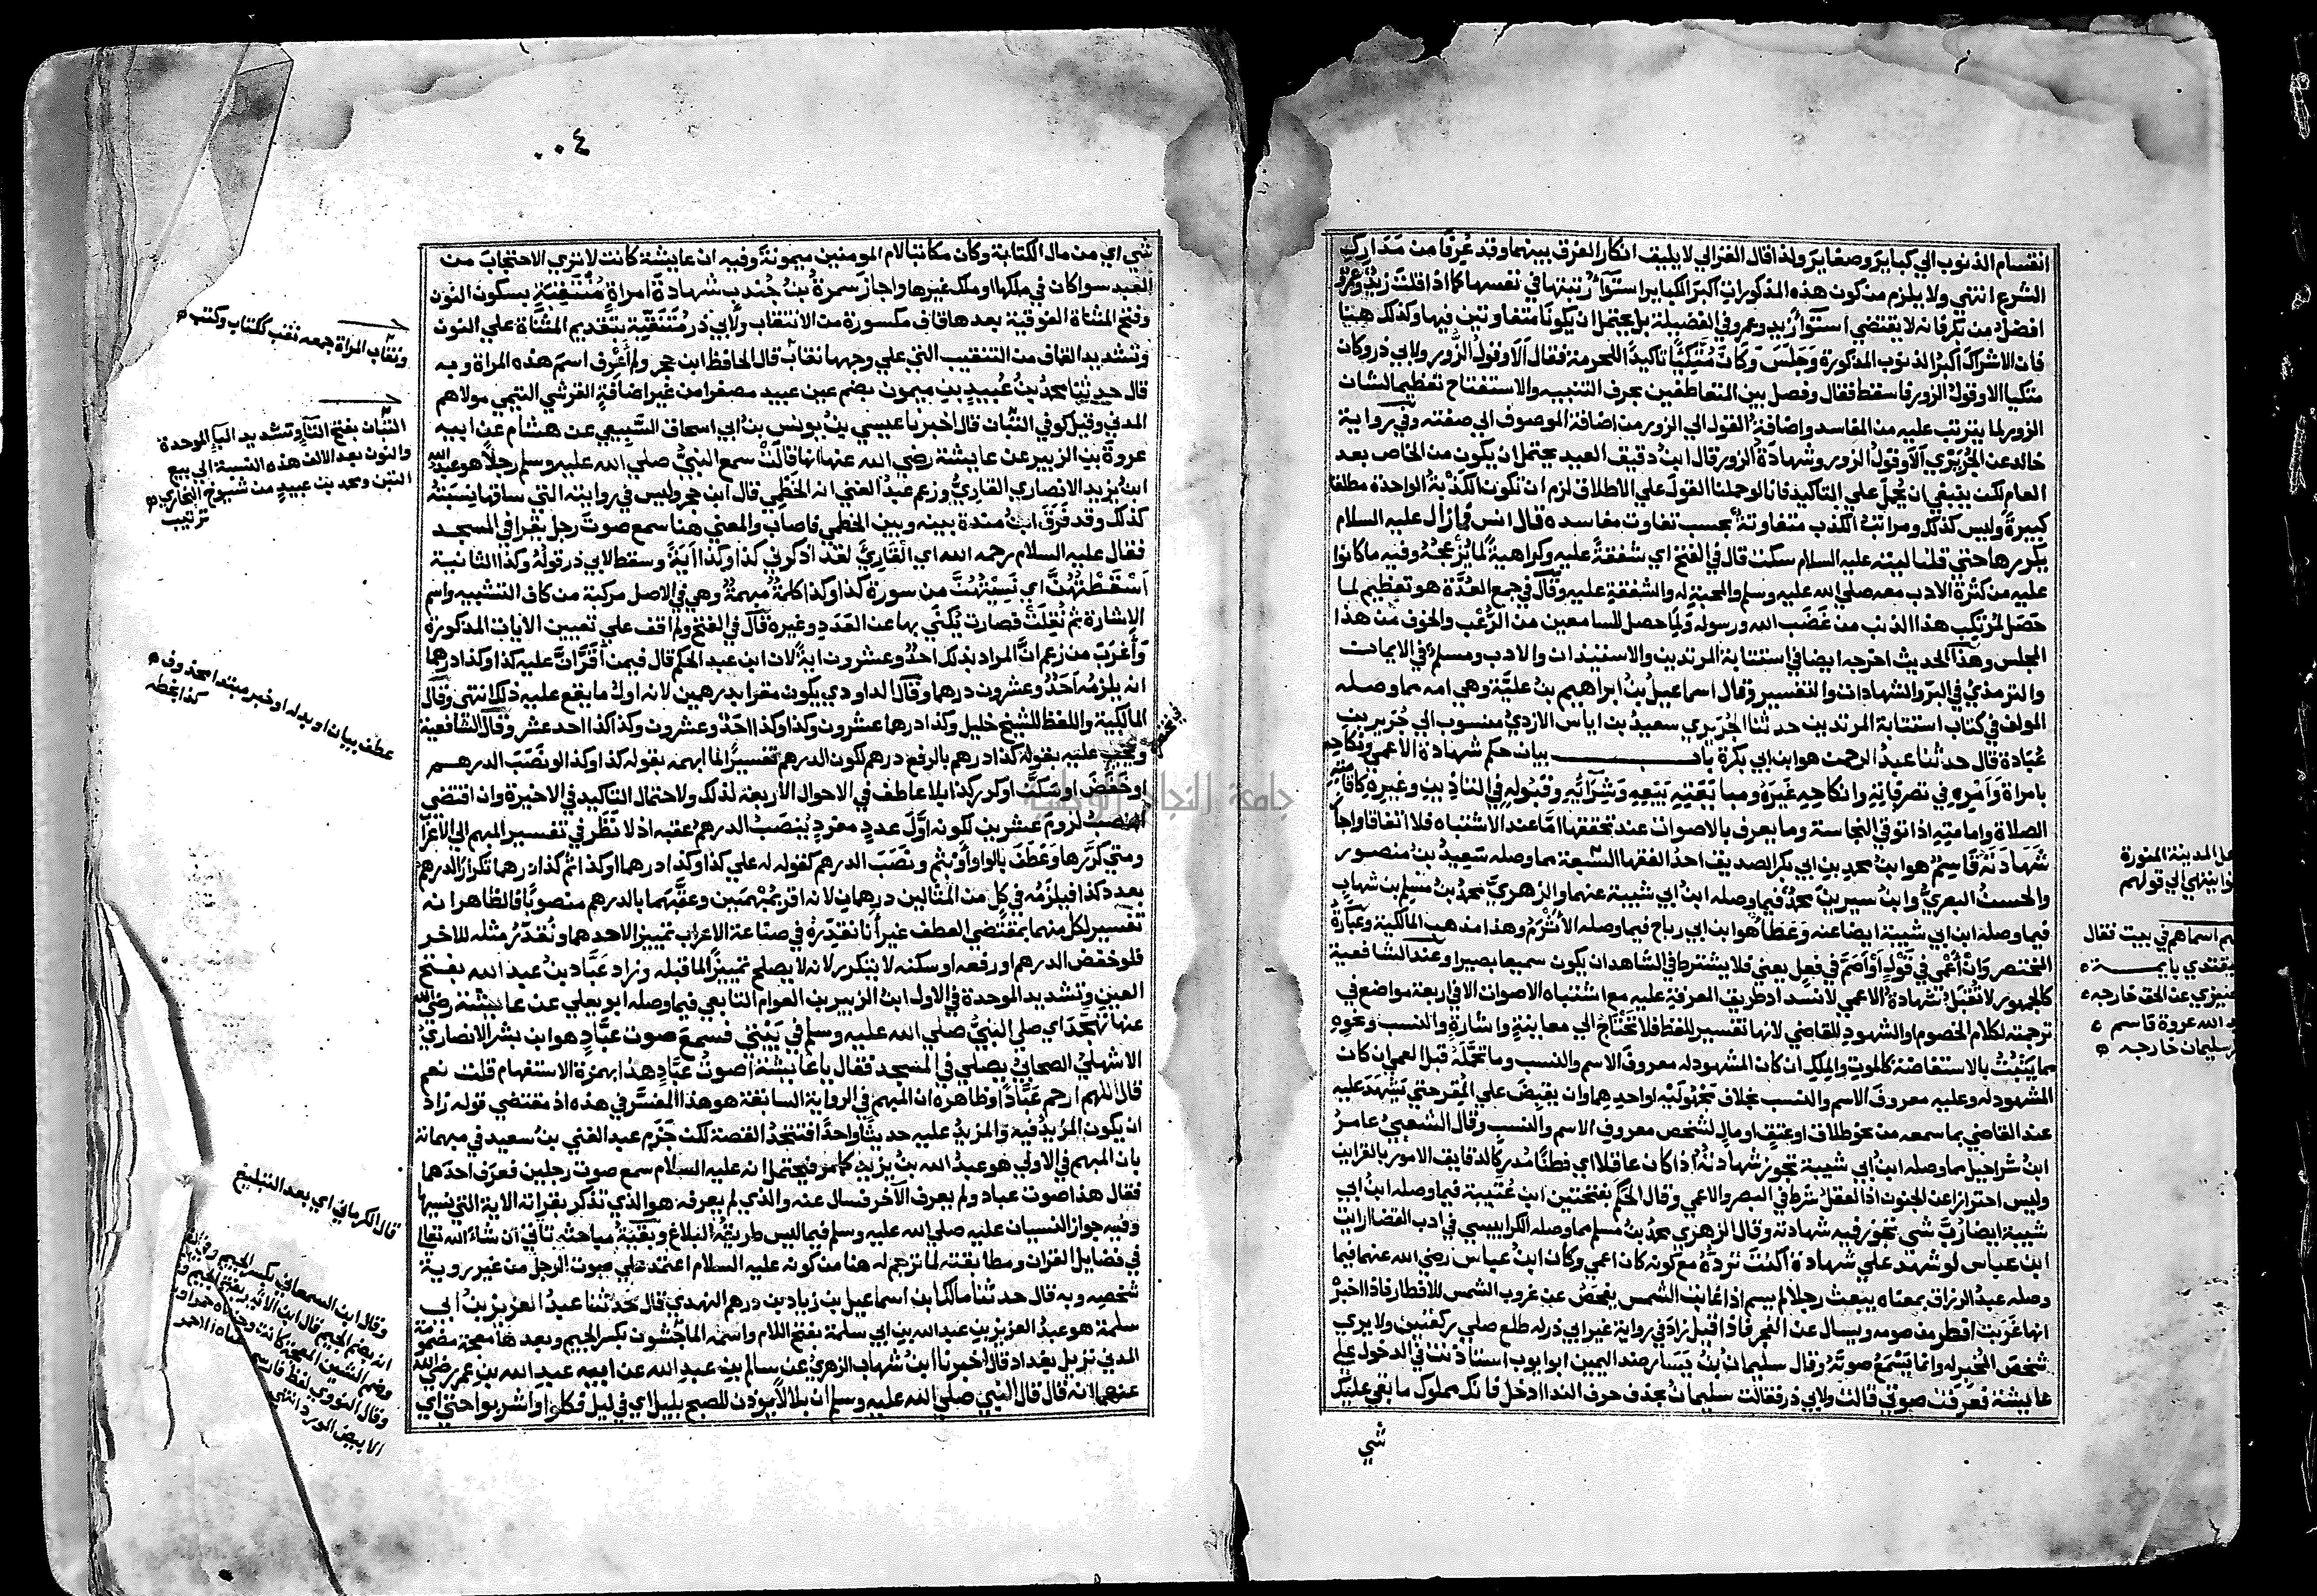 انقسام الذنوب الي كباير وصغاير ولذا قال الغزالي لا يليق انكار الفرق بينهما وقد عُرفا من مَدَارِكِ
الشرع انتهي ولا يلزم من كون هذه المذكورات اكبر الكباير استوآء رتبتها في نفسها كما اذا قلت زيد وعمرو
افضل من بكر فانه لا يقتضي استوآ زيد وعمرو في الفضيلة بل يحتمل ان يكونا متفاوتين فيها وكذلك هنا
فان الاشراك اكبر الذنوب المذكورة وَجَلَسَ وَكَانَ مُتَّكِئًا تاكيدًا للحرمة فقال اَلَا وقولُ الزُّور ولابي ذر وكان
متكيا الا وقول الزور فاسقط فقال وفصل بين المتعاطفين بحرف التنبيه والاستفتاح تعظيما لشان
الزور لما يترتب عليه من المفاسد واضافة القول الي الزور من اضافة الموصوف الي صفته وفي رواية
خالد عن الجُرَيْري اَلَا وقولُ الزور وشهادَةُ الزور قال ابنُ دقيق العيد يحتمل ان يكون من الخاص بعد
العام لكن ينبغي ان يُحمل علي التاكيد فانا لو حملنا القول علي الاطلاق لزم ان تكون الكَذْبَةُ الواحدة مطلقا
كبيرةً وليس كذلك ومراتبُ الكذب متفاوتة بحسب تفاوت مفاسده قال انس فما زال عليه السلام
يكررها حتي قلنا ليته عليه السلام سكت قال في الفتح اي شفقةً عليه وكراهيةً لما يُزْعجُهُ وفيه ما كانوا
عليه من كثرة الادب معه صلي الله عليه وسلم والمحبةِ له والشفقةِ عليه وقال في جمع العُدَّة هو تعظيم لما
حَصَل لمُرتكِب هذا الذنب من غَضَب الله ورسوله ولِمَا حصل للسامعين من الرُّعْب والخوف من هذا
المجلس وهذا الحديث اخرجه ايضا في استتابة المرتدين والاستئذان والادب ومسلم في الايمان
والترمذيُّ في البرّ والشهادات والتفسير وقال اسماعيلُ بنُ ابراهيم بنُ عليَّة وهي امه مما وصله
المولف في كتاب استتابة المرتدين حدثنا الجُرَيري سعيدُ بن اياس الازديُّ منسوب الي جُرَيرِ بنِ
عُبَادة قال حدثنا عبدُ الرحمن هو ابن ابي بكرة باب بيان حكم شهادة الاعمي ونكاحِه
بامراة وَاَمْرِهِ في تصرفاته وانكاحِهِ غَيْرَهُ ومبايَعَتِهِ بَيعِهِ وَشِرَآئِهِ وقبُولِه في التاذينِ وغيرِه كاقامته
الصلاة وامامتِه اذا توقي النجاسة وما يعرف بالاصوات عند تحققها امَّا عند الاشتباه فلا اتفاقا واجاز
شَهَادَتَهُ قَاسِمٌ هو ابنُ محمدِ بنِ ابي بكر الصديق احدُ الفقها السَّبعة مما وصله سَعيدُ بنُ منصور
والحسنُ البصريُّ وابنُ سيرينَ محمدٌ فيما وصله ابنُ ابي شيبة عنهما والزهريُّ محمدُ بنُ مسلم بن شهاب
فيما وصله ابن ابي شيبة ايضا عنه وعَطَآءٌ هو ابن ابي رباح فيما وصله الأَثْرَمُ وهذا مذهب المالكية وعبارةُ
المختصر وَاِنْ أَعْمي في قَوْلٍ اَوْ اَصَمَّ في فعل يعني فلا يشترط في الشاهد ان يكون سميعا بصيرا وعند الشافعية
كالجمهور لا تُقبَلُ شهادةُ الاعمي لانسداد طريق المعرفة عليه مع اشتباه الاصوات الا في اربعة مواضع في
ترجمته لكلام الخصوم او الشهود للقاضي لانها تفسير للفظ فلا تَحْتاج الي معاينةٍ واشارةٍ والنسب ونحوِه
مما يَثْبُتُ بالاستفاضة كالموتِ والمِلكِ ان كان المشهود له معروفَ الاسم والنسب وما تَحَمَّلَهُ قبل العمي ان كان
المشهود له وعليه معروفَ الاسم والنسب بخلاف مَجْهُولَيْه او احدِهِما وان يقبِضَ علي المُقِر حتي يَشهَدَ عليه
عند القاضي بما سمعه من نحو طلاق او عتقٍ او مالٍ لشخص معروف الاسم والنسب وقال الشعبيُّ عامرُ
ابنُ شراحيل مما وصله ابنُ ابي شيبة تجوز شهادتُهُ اذا كان عاقلا اي فطنًا مُدرِكًا لدقايق الامور بالقراين
وليس احترازا عن الجنون اذ العقل شرط في البصير والاعمي وقال الحَكَمُ بفتحتين ابن عُتَيبة فيما وصله ابنُ ابي
شيبة ايضا رُبَّ شي تجوز فيه شهادته وقال الزهري محمدُ بنُ مسلم مما وصله الكرابيسي في ادب القضا ارايت
ابن عباس لو شهد علي شهادةٍ اكُنْتَ تَرُدُّهُ مع كونه كان اعمي وكان ابنُ عباس رضي الله عنهما فيما
وصله عبدُ الرزاق بمعناه يبعث رجلا لم يسم اذا غابت الشمس يفحَصُ عن غروب الشمس للافطار فاذا اخبرَ
انها غَرَبَت افطر من صومه ويسال عن الفجر فاذا قيل زاد في رواية غير ابي ذر له طلع صلي ركعتين ولا يري
شخصَ المُخبِر له وانما يَسْمَعُ صوتَهُ وقال سليمانُ بنُ يَسَار ضد اليمين ابو ايوب استاذنت في الدخول علي
عايشة فعَرَفت صوتي قالت ولابي ذر فقالت سليمانُ بحذف حرف الندا ادخل فانك مملوك ما بقي عليك
شي
المدينة المنورة
الي قولهم
اسماهم في بيت فقال
يقتدي بايمة
عن الحق خارجه
الله عروة قاسم
سليمان خارجه
٤٠٠
شي اي من مال الكتابة وكان مكاتبا لام المومنين ميمونة وفيه ان عايشة كانت لا تري الاحتجاب من
العبد سوا كان في ملكها او ملك غيرها واجاز سمرةُ بنُ جُندبٍ شهادةَ امراةٍ مُنْتَقِبَةٍ بسكون النون
وفتح المثناة الفوقية بعدها قاف مكسورة من الانتقاب ولأبي ذر مُتَنَقِّبَةٍ بتقديم المثناة علي النون
وتشديد القاف من التنقيب التي علي وجهها نقاب قال الحافظ ابن حجر ولم أَعْرِف اسم هذه المراة وبه
قال حدثنا محمدُ بنُ عُبيدِ بنِ ميمون بضم عين عبيد مصغرا من غير اضافةٍ القرشي التيمي مولاهم
المدني وقيل كوفي التَّبَّان قال اخبرنا عيسي بنُ يونس بنُ ابي اسحاق السَّبيعي عن هشام عن ابيه
عروةَ بنِ الزبير عن عايشة رضي الله عنها انها قالَتْ سمع النبيُّ صلي الله عليه وسلم رجلاً هو عبدُ الله
ابنُ يزيد الانصاري القاريُّ وزعم عبدُ الغني انه الخَطْمِي قال ابن حجر وليس في روايته التي ساقها نِسْبَتُهُ
كذلك وقد فَرَق ابنُ مندة بينه وبين الخطمي فاصاب والمعني هنا سمع صوتَ رجل يقرا في المسجد
فقال عليه السلام رحمه الله اي القَارِيَّ لقد اذكرني كذا وكذا اَيةً وسقط لابي ذر قولُهُ وكذا الثانية
أَسْقَطْتُهُنَّ اي نَسِيْتُهُنَّ من سورة كذا وكذا كلمةٌ مُبهمةٌ وهي في الاصل مركبة من كاف التشبيه واسم
الاشارة ثم نُقِلَتْ فصارت يُكْنَي بها عن العَدَدِ وغيره قال في الفتح ولم اقف علي تعيين الايات المذكورة
وَأَغرَبَ من زعم انَّ المراد بذلك احدٌ وعشرون ايةً لان ابن عبد الحكم قال فيمن أَقَرَّ انَّ عليه كذا وكذا درهما
انه يلزمُه اَحَدٌ وعشرون درهما وقال الداودي يكون مقرا بدرهمين لانه اول ما يقع عليه ذلك انتهي وقال
المالكية واللفظ للشيخ خليل وكذا درهما عشرون وكذا وكذا احدٌ وعشرون وكذا كذا احد عشر وقال الشافعية
ويجب عليه بقوله كذا درهم بالرفع درهم لكون الدرهم تفسيرًا لما ابهمه بقوله كذا وكذا لو نَصَبَ الدرهم
او خَفَضَ او سَكَّنَ او كرر كذا بلا عاطف في الاحوال الاربعة لذلك ولاحتمال التاكيد في الاخيرة وان اقتضي
النصبُ لزومَ عشرين لكونه اوَّلَ عددٍ مفردٍ يُنصَبُ الدرهمُ عقبه اذ لا نَظَر في تفسير المبهم الي الاعراب
ومتي كَرَّرها وعَطَفَ بالواو أَوْ بثُمَ ونَصَبَ الدرهم كقوله له علي كذا وكذا درهما او كذا ثم كذا درهما تكرَّر الدرهم
بعدد كذا فيلزَمُه في كلٍ من المثالين درهمان لانه اقر بمُبْهَمَين وعقَّبَهما بالدرهم منصوبًا فالظاهر انه
تفسير لكل منهما بمقتضي العطف غير أنا نقدِّرهُ في صناعة الاعراب تمييزا لاحدهما ونُقدِّرُ مثله للاخر
فلو خفض الدرهم او رفعه او سكنه لا يتكرر لانه لا يصلح تمييزًا لما قبله وزاد عَبَّاد بنُ عبد الله بفتح
العين وتشديد الموحدة في الاول ابنُ الزبير بن العوام التابعي فيما وصله ابو يعلي عن عايشة رضي الله
عنها تهجَّدَ اي صلي النبيُّ صلي الله عليه وسلم في بَيْتي فسمع صوت عبَّادٍ هو ابن بشر الانصاريُّ
الاشهليُ الصحابيُّ يصلي في المسجد فقال يا عايشة اصوتُ عبَّادٍ هذا بهمزة الاستفهام قلت نعم
قال اللهم ارحم عَبَّادًا وظاهره ان المبهم في الرواية السابقة هو هذا المفسَّر في هذه اذ مقتضي قوله زاد
ان يكون المزيدُ فيه والمزيدُ عليه حديثًا واحدًا فتتحدُ القصة لكن جَزَم عبد الغني بنُ سعيد في مبهماته
بان المبهم في الاولي هو عبدُ الله بنُ يزيد كما مر فيحتمل انه عليه السلام سمع صوت رجلين فعرَف احدَهما
فقال هذا صوت عباد ولم يعرف الآخر فسال عنه والذي لم يعرفه هو الذي تذكر بقراته الاية التي نسيها
وفيه جواز النسيان عليه صلي الله عليه وسلم فيما ليس طريقُه البلاغ وبَقيَّةُ مباحثه تاتي اَن شاءَ الله تعالي
في فضايل القران ومطابقته لما ترجم له هنا من كونه عليه السلام اعتمد علي صوت الرجل من غير روية
شخصِه وبه قال حدثنا مالكُ بن اسماعيل بن زياد بن درهم النهدي قال حدثنا عبدُ العزيز بنُ ابي
سلمة هو عبدُ العزيز بن عبد الله بن ابي سلمة بفتح اللام واسمه الماجِشون بكسر الجيم وبعدها معجمة مضمومة
المدني نزيل بغداد قال اخبرنا ابنُ شهاب الزهريُّ عن سالم بنِ عبدِ الله عن ابيه عبدِ الله بن عمر رضي الله
عنهما انه قال قال النبي صلي الله عليه وسلم ان بلالاً يوذن للصبح بليل اي في ليل فكلوا واشربوا حتي اي
ونقاب المراة جمعه نقب ككتاب وكتب
التبَّان بفتح التآء وتشديد الباء الموحدة
والنون بعد الالف هذه النسبة الي بيع
التبن ومحمد بن عبيد من شيوخ البخاري
ترتيب
عطف بيان او بدل او خبر مبتدا محذوف
كذا بخطه
قال الكرماني اي بعد التبليغ
وقال ابن السمعاني بكسر الجيم
انه بضم الجيم قال ابن الاثير بفتح الجيم
وضم الشين المعجمة
وقال النووي لفظ فارسي معناه الاحمر
الابيض المورد انتهي
جامعة النجاح الوطنية